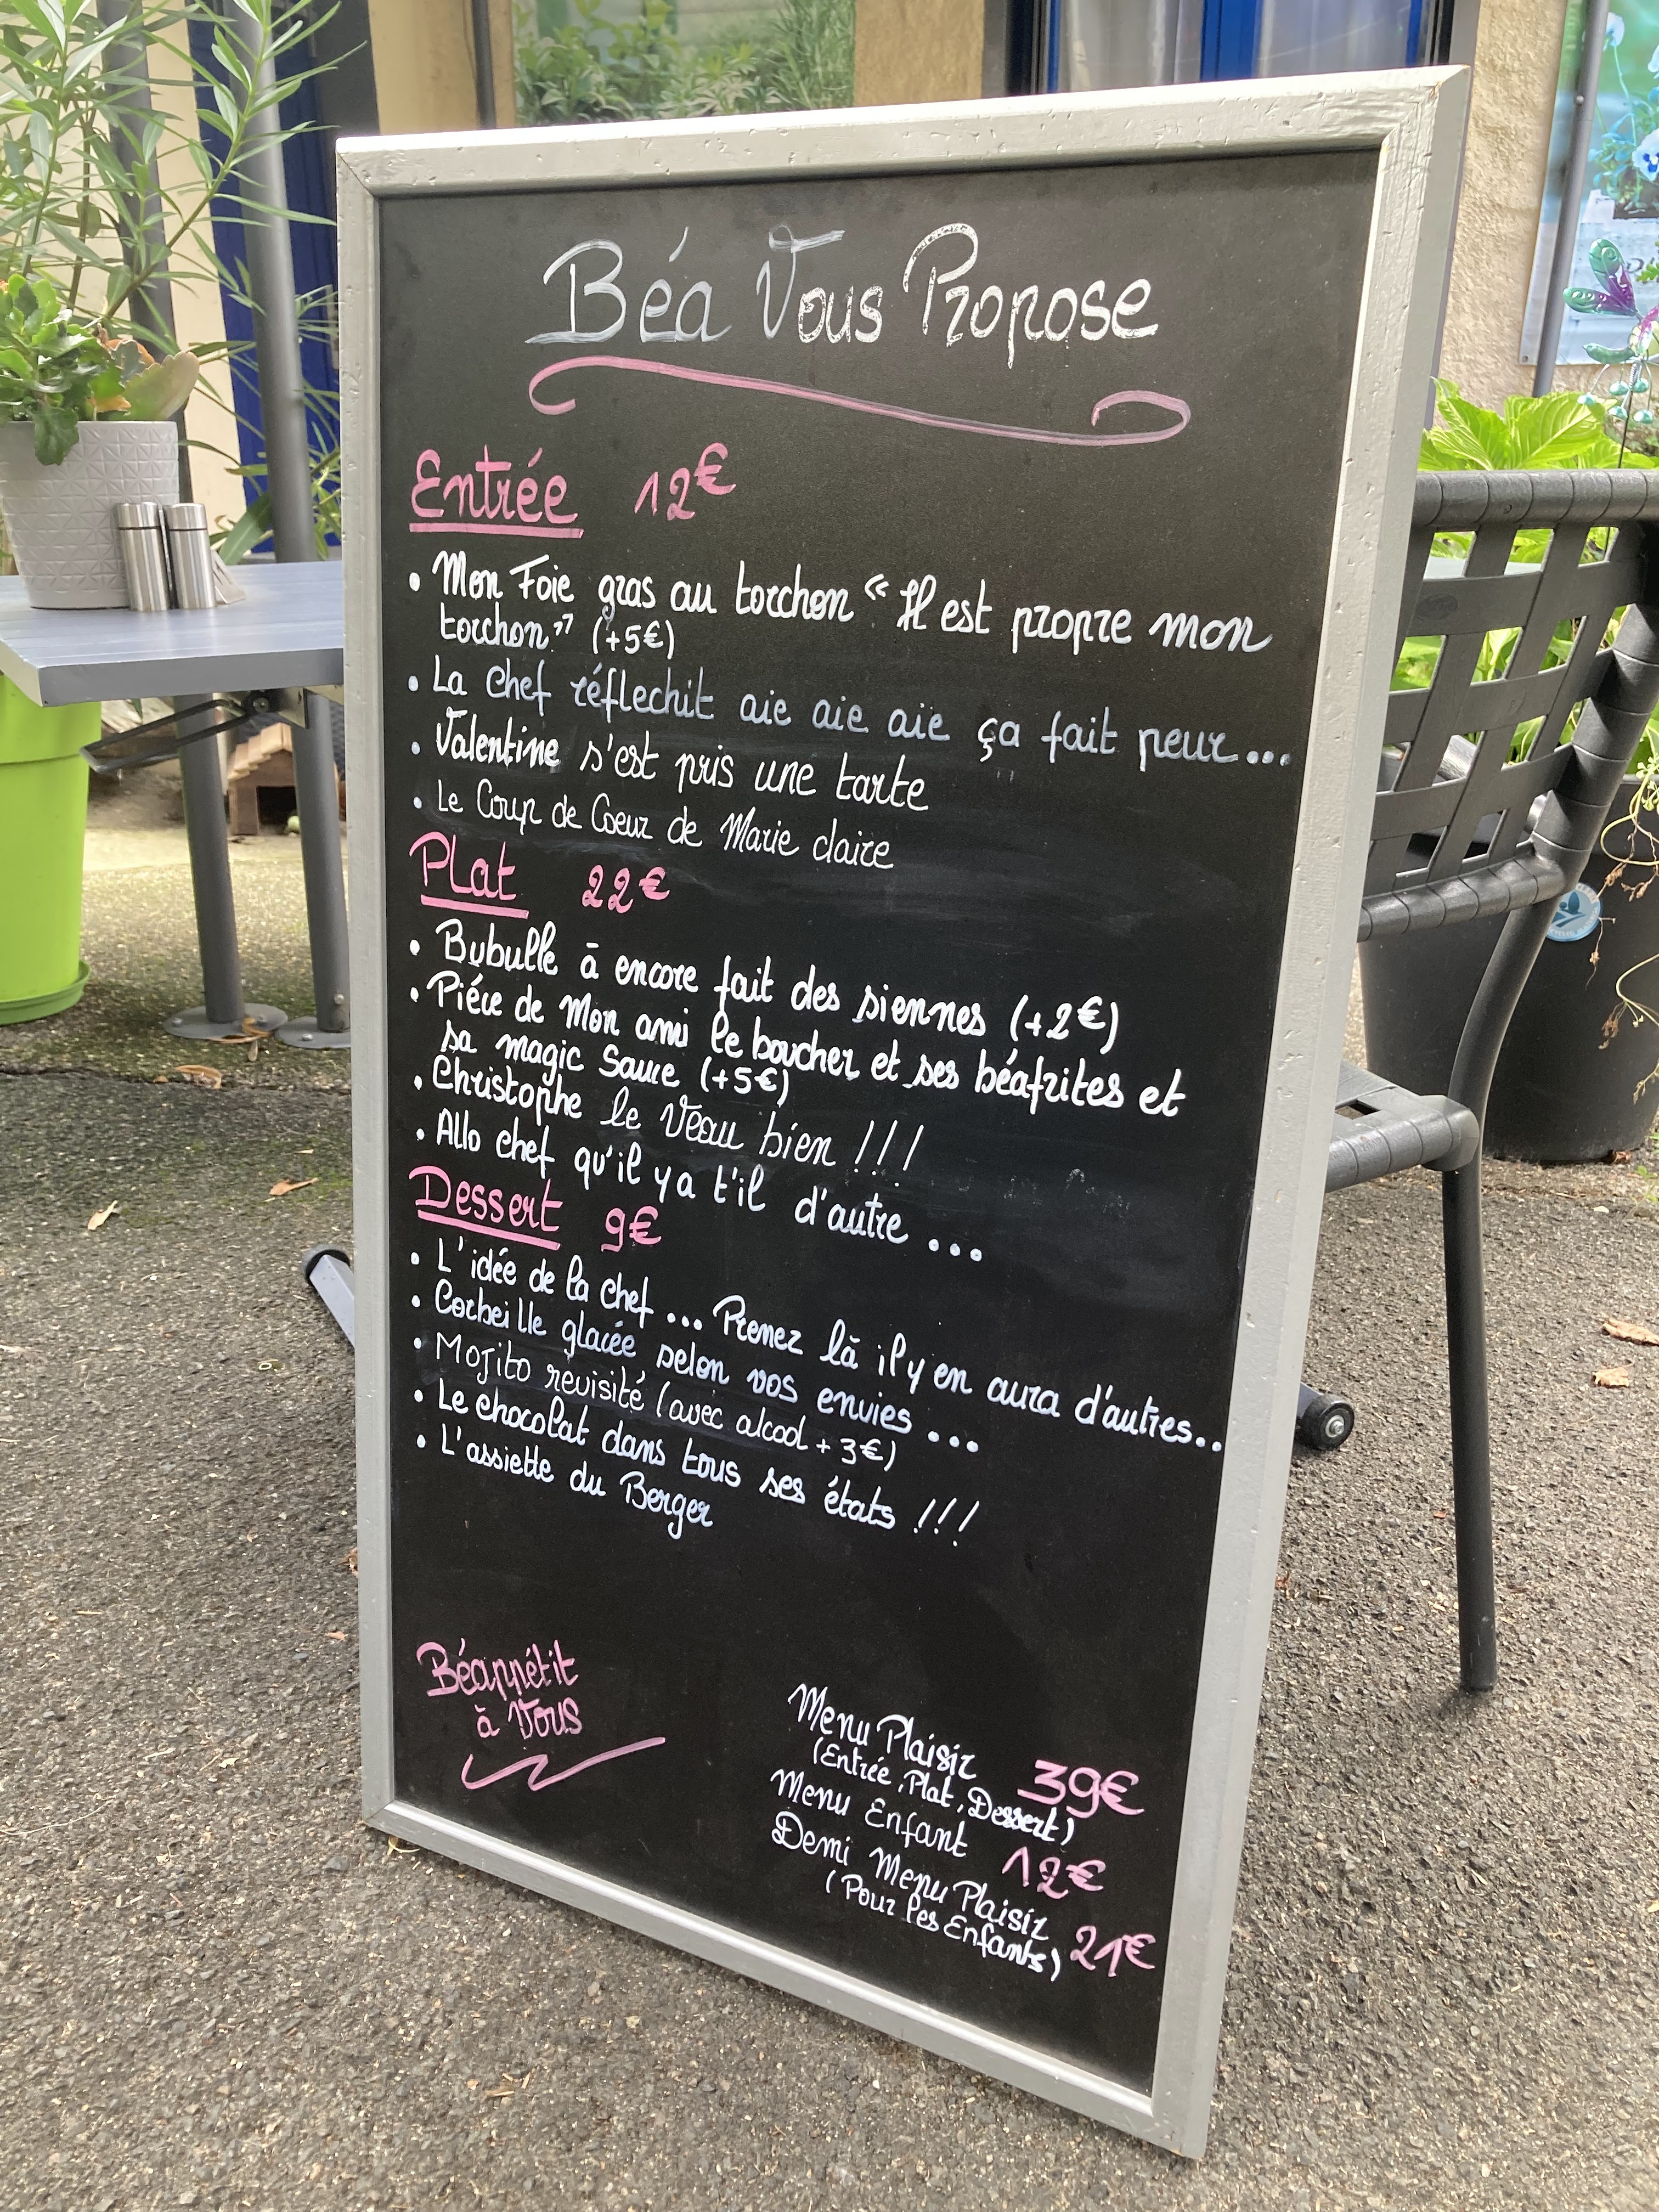 Béa Vous Propose
Entrée 12€
• Mon Foie gras au torchon "Il est propre mon
torchon" (+5€)
• La chef réflechit aie aie aie ça fait peur...
• Valentine s'est pris une tarte
• Le Coup de Coeur de Marie claire
Plat 22€
• Bubulle à encore fait des siennes (+2€)
• Piéce de Mon ami le boucher et ses béafrites et
sa magic Sauce (+5€)
• Christophe le Veau bien !!!
• Allo chef qu'il y a t'il d'autre...
Dessert 9€
• L'idée de la chef... Prenez là il y en aura d'autres...
• Corbeille glacée selon vos envies...
• Mojito revisité (avec alcool +3€)
• Le chocolat dans tous ses états !!!
• L'assiette du Berger
Béappétit
à Vous
Menu Plaisir 39€
(Entrée, Plat, Dessert)
Menu Enfant 12€
Demi Menu Plaisir 21€
(Pour les Enfants)